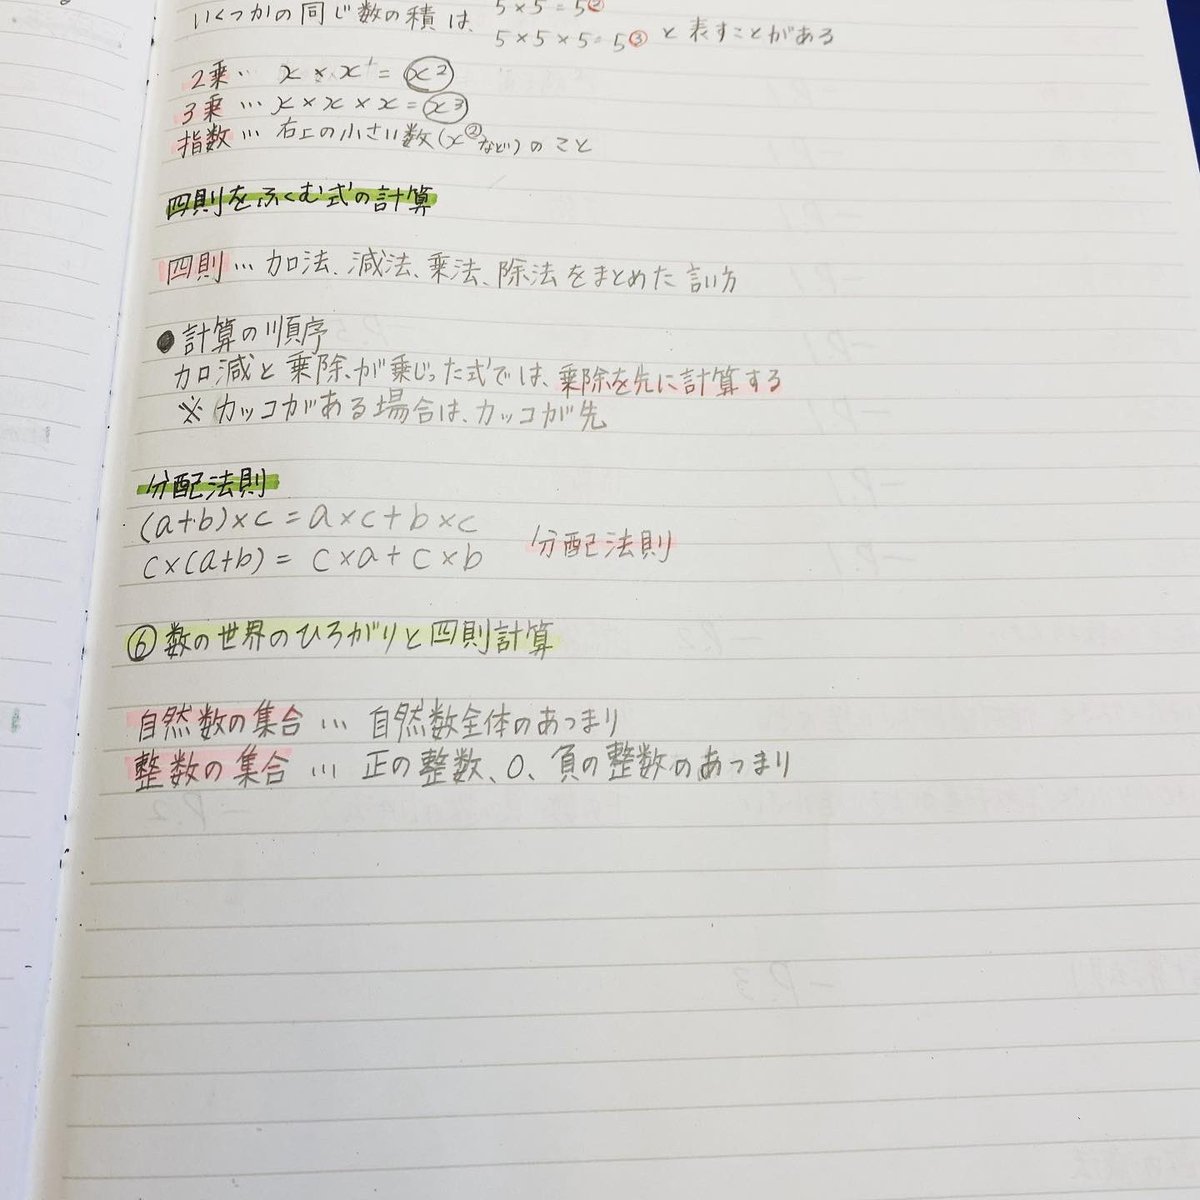 いくつかの同じ数の積は、 5×5=5²
5×5×5=5³ と表すことがある
2乗… x×x=x²
3乗… x×x×x=x³
指数… 右上の小さい数(x²など)のこと
四則をふくむ式の計算
四則… 加法、減法、乗法、除法をまとめた言い方
●計算の順序
加減と乗除が乗じった式では、乗除を先に計算する
※カッコがある場合は、カッコが先
分配法則
(a+b)×c=a×c+b×c
c×(a+b)= c×a+c×b 分配法則
⑥数の世界のひろがりと四則計算
自然数の集合 … 自然数全体のあつまり
整数の集合 … 正の整数、0、負の整数のあつまり